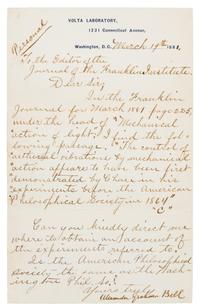 VOLTA LABORATORY,
1221 Connecticut Avenue,
Personal
Washington, D.C. March 19th 1881.
To the Editor of the
Journal of the Franklin Institute.
Dear Sir,
In the Franklin
Journal for March 1881 page 225,
under the head of "Mechanical
action of light" I find the fol-
lowing passage. "The control of
"aetherial vibrations by mechanical
"action appears to have been first
"demonstrated by Chase in his
"experiments before the American
"Philosophical Society in 1864"
"C"
Can you kindly direct me
where to obtain an account of
the experiment referred to?
Is the American Philosophical
Society the same as the Wash-
ington Phil. So.?
Yours truly
Alexander Graham Bell